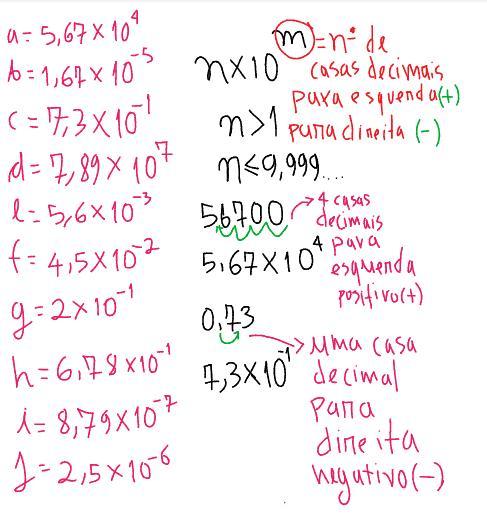 a = 5,67 x 10⁴
b = 1,67 x 10⁻⁵
c = 7,3 x 10⁻¹
d = 7,89 x 10⁷
l = 5,6 x 10⁻³
f = 4,5 x 10⁻²
g = 2 x 10⁻¹
h = 6,78 x 10⁻¹
i = 8,79 x 10⁻⁷
J = 2,5 x 10⁻⁶
n x 10 m = nº de
casas decimais
para esquerda (+)
n > 1 para direita (-)
n ≤ 9,999....
56700 → 4 casas
decimais
5,67 x 10⁴ para
esquerda
positivo (+)
0,73 → uma casa
7,3 x 10⁻¹ decimal
para
direita
negativo (-)